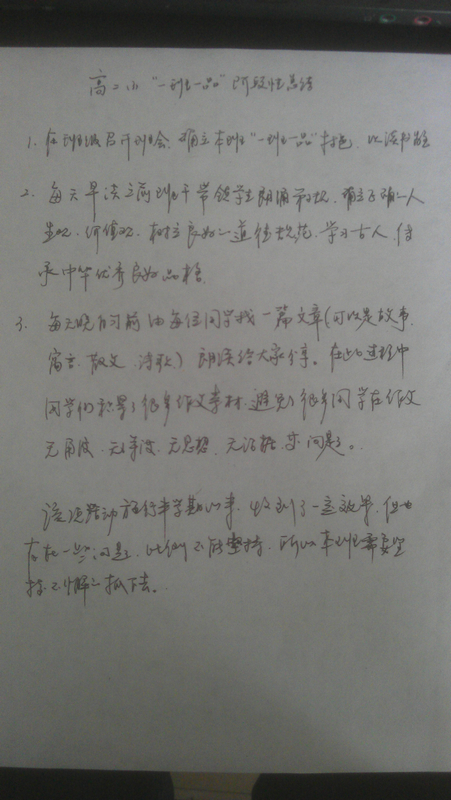 高二小"一班一品"阶段性总结
1. 在班级召开班会,确立本班"一班一品"特色,以读书
2. 每天早读之前班干带领学生朗诵弟子规,确立了正确人
生观、价值观,树立良好的道德规范,学习古人,传
承中华优秀良好品格
3. 每天晚自习前由每位同学找一篇文章(可以是故事、
寓言、散文、诗歌)朗读给大家分享。在此过程中
同学们积累了很多作文素材,避免了很多同学在作文
无角度、无深度、无思想、无话题等问题。
该项活动施行半学期以来,收到了一定效果,但也
存在一些问题,比如不能坚持,所以本班需要坚
持不懈的抓下去。